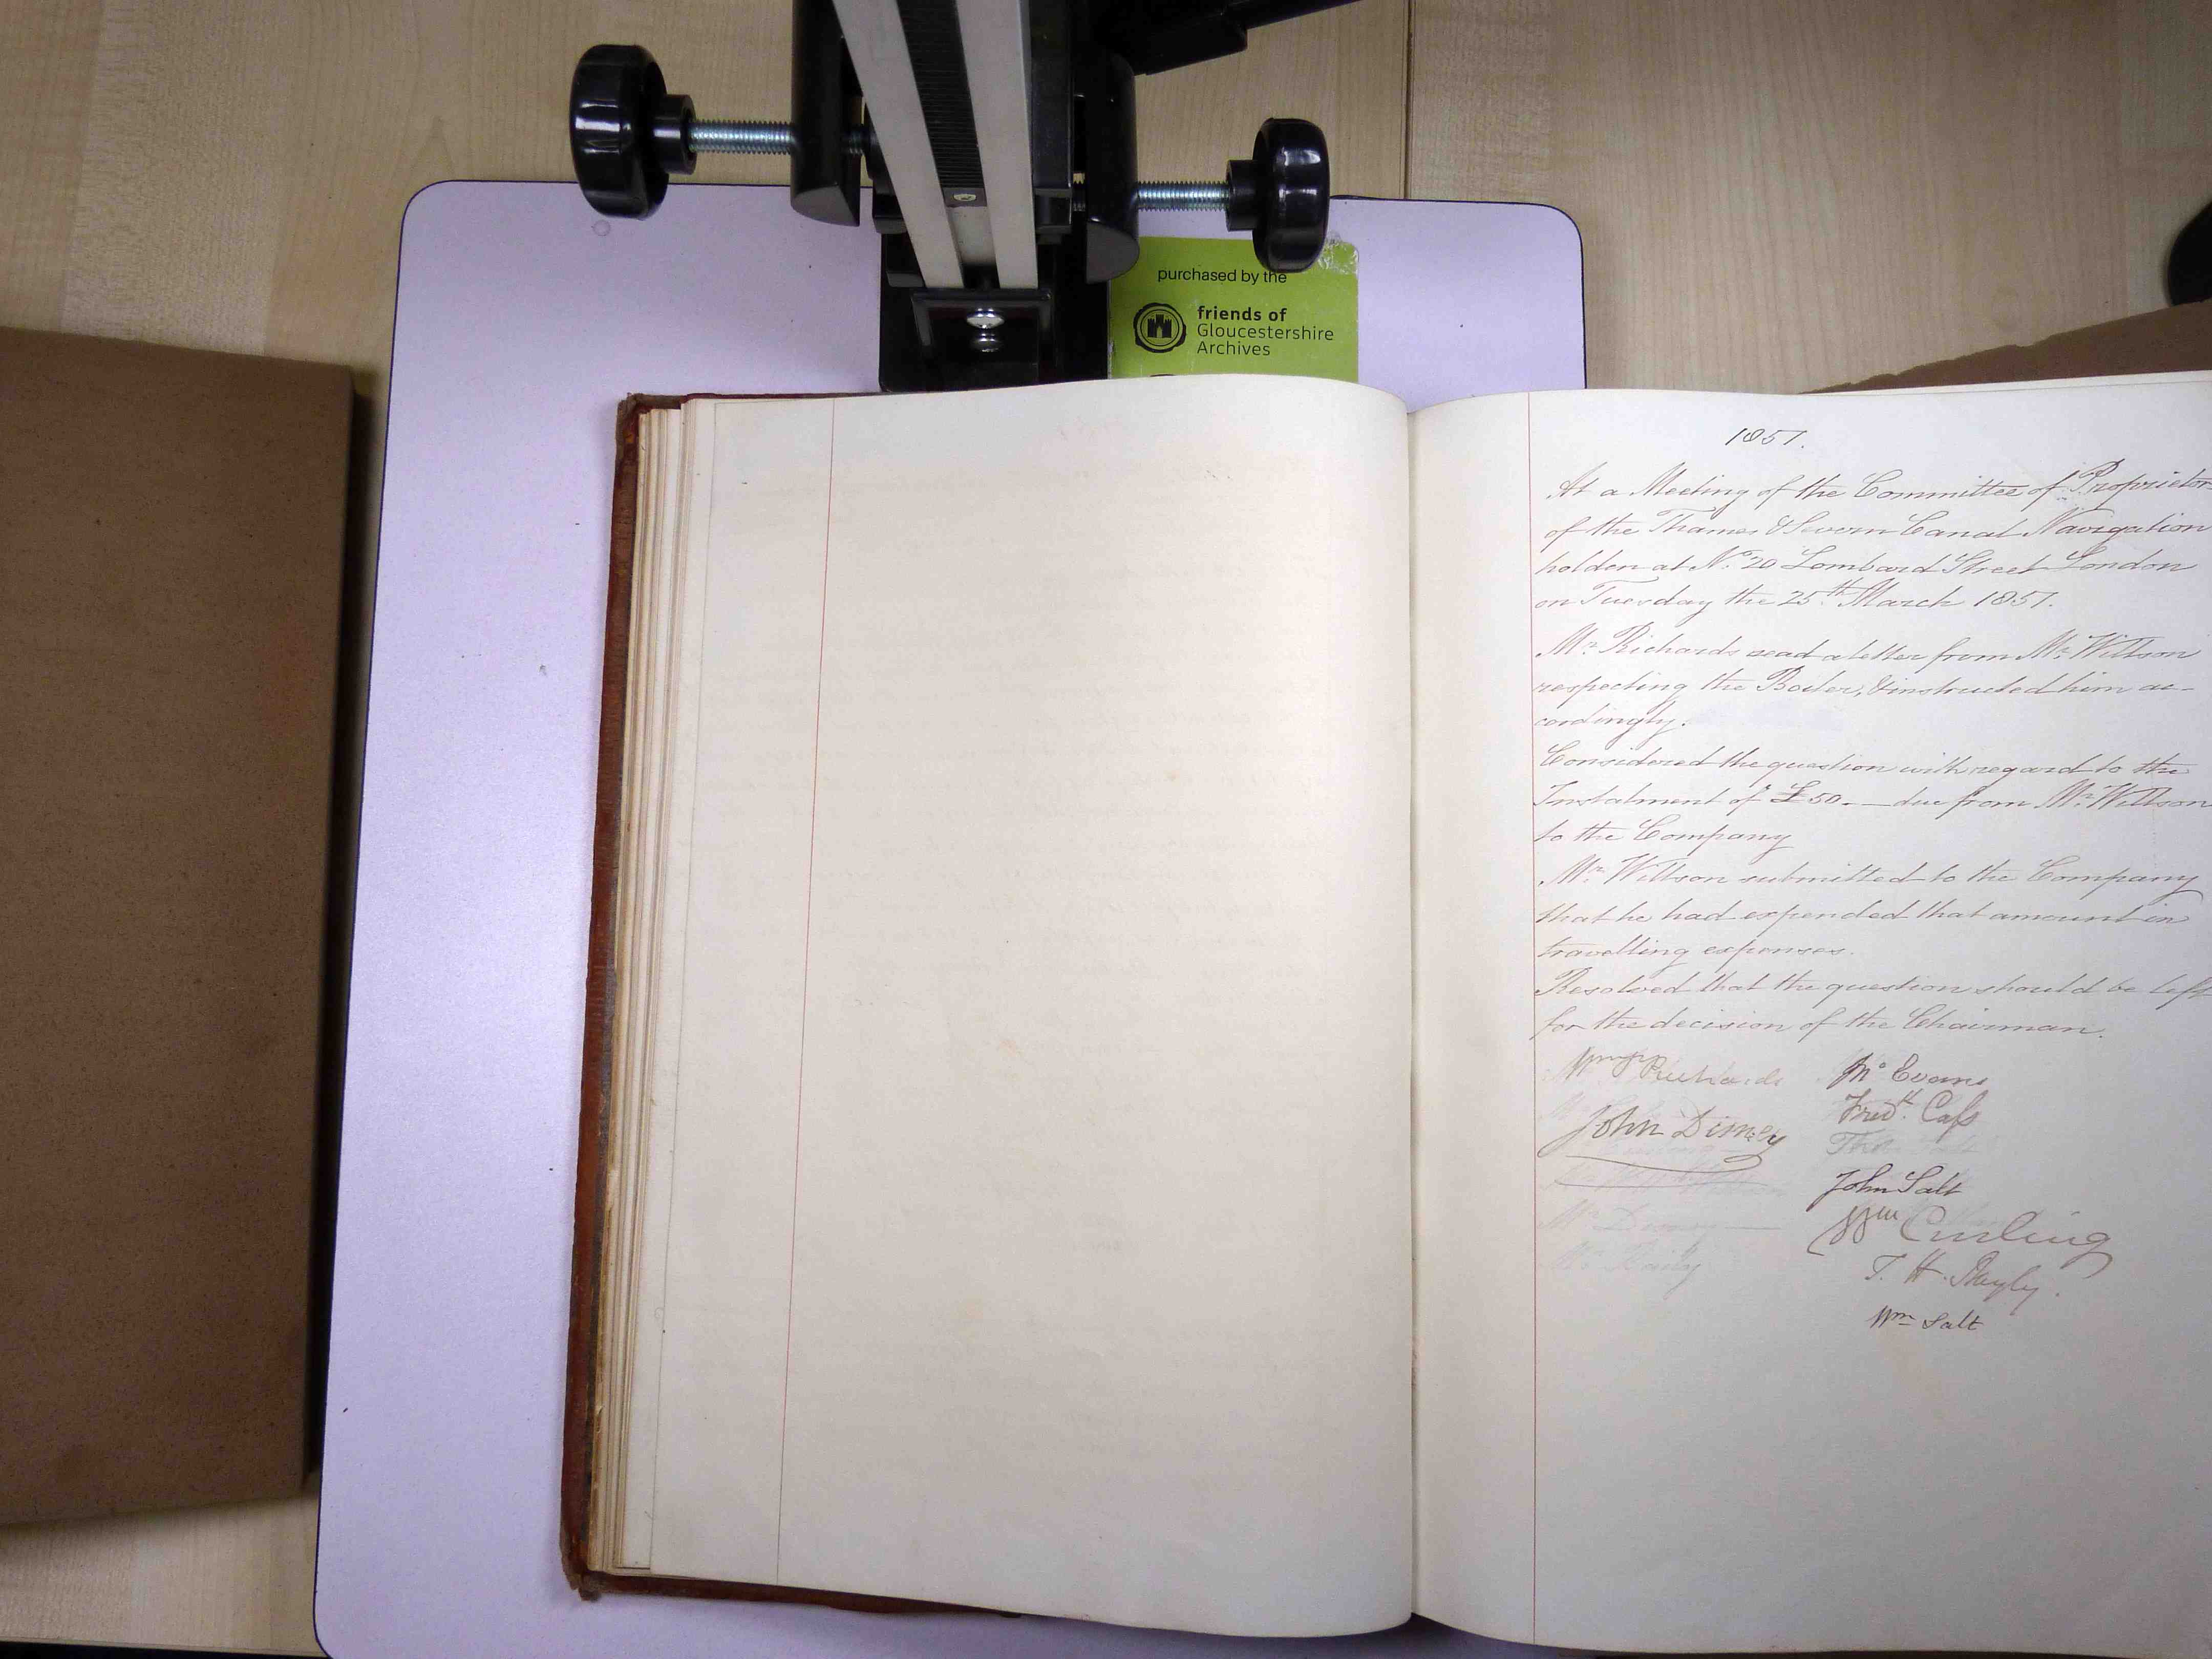 purchased by the
friends of
Gloucestershire
Archives
1851.
At a Meeting of the Committee of Proprietors
of the Thames & Severn Canal Navigation
holden at No. 20 Lombard Street London
on Tuesday the 25th March 1851.
Mr. Richards read a letter from Mr. Wittson
respecting the Boiler, & instructed him ac-
cordingly.
Considered the question with regard to the
Instalment of £50.— due from Mr. Wittson
to the Company
Mr. Wittson submitted to the Company
that he had expended that amount in
travelling expenses.
Resolved that the question should be left
for the decision of the Chairman.
Richards
John Disney
Mr. Disney
Mr.
Evans
Fredk. Cass
John Salt
Wm Curling
T. H.
Wm Salt